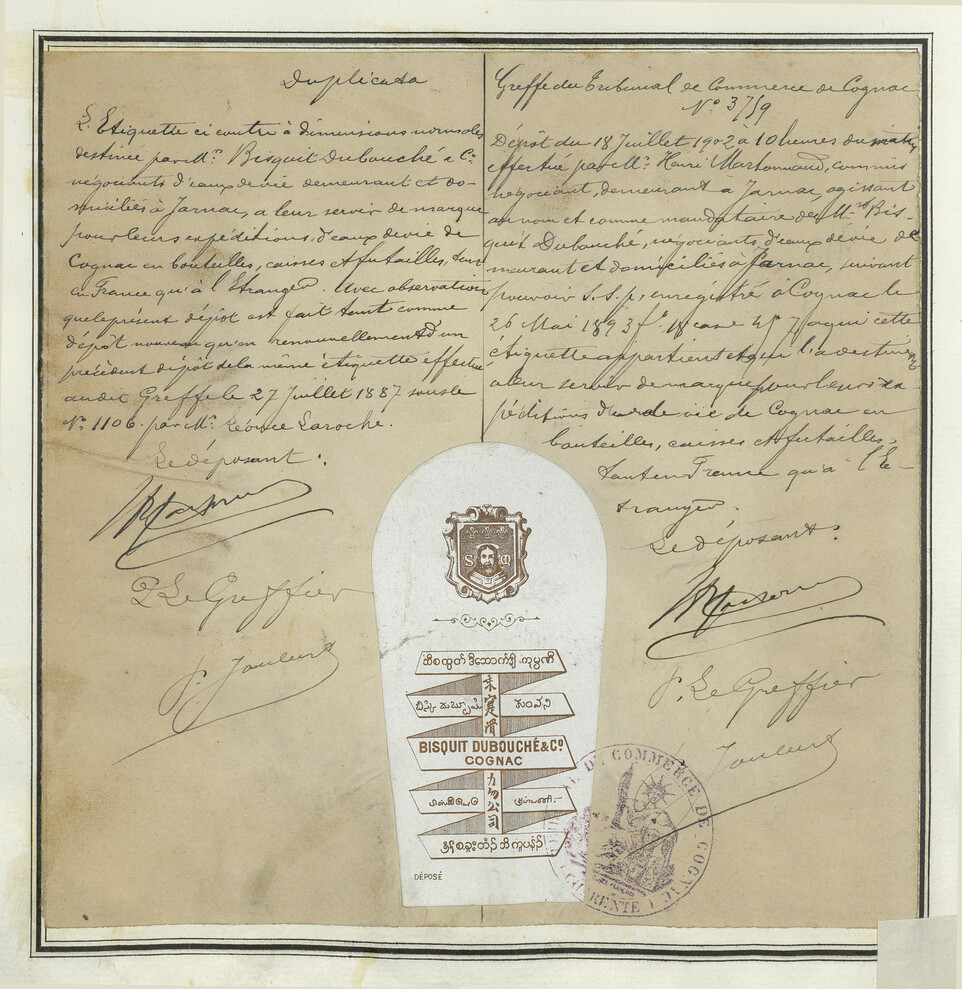 Duplicata
L'Etiquette ci contre à dimensions normales
destinée par Mrs. Bisquit Dubouché & Cie
négociants d'eaux de vie demeurant et do-
miciliés à Jarnac, a leur servir de marque
pour leurs expéditions d'eaux de vie de
Cognac en bouteilles, caisses et futailles, tant
en France qu'à l'Etranger. Avec observation
que le présent dépôt est fait tant comme
dépôt nouveau qu'en renouvellement d'un
précédent dépôt de la même étiquette effectué
au dit Greffe le 27 Juillet 1887 sous le
No. 1106. par Mr. Léonce Laroche.
Le déposant.
P. Le Greffier
Greffe du Tribunal de Commerce de Cognac
No 3759
Dépôt du 18 Juillet 1902 à 10 heures du matin
effectué par Mr. Henri commis
négociant, demeurant à Jarnac, agissant
au nom et comme mandataire de Mrs Bis-
quit Dubouché, négociants d'eaux de vie de
meurant et domiciliés à Jarnac, suivant
pouvoir S.S.p. enregistré à Cognac le
26 Mai 1893 fo case a qui cette
étiquette appartient et qui l'a destinée
a leur servir de marque pour leurs ex-
péditions d'eau de vie de Cognac en
bouteilles, caisses et futailles,
tant en France qu'à l'E-
tranger.
Le déposant.
P. Le Greffier
S M
BISQUIT DUBOUCHÉ & Co
COGNAC
公司
DÉPOSÉ
DE COMMERCE DE COGNAC
CHARENTE